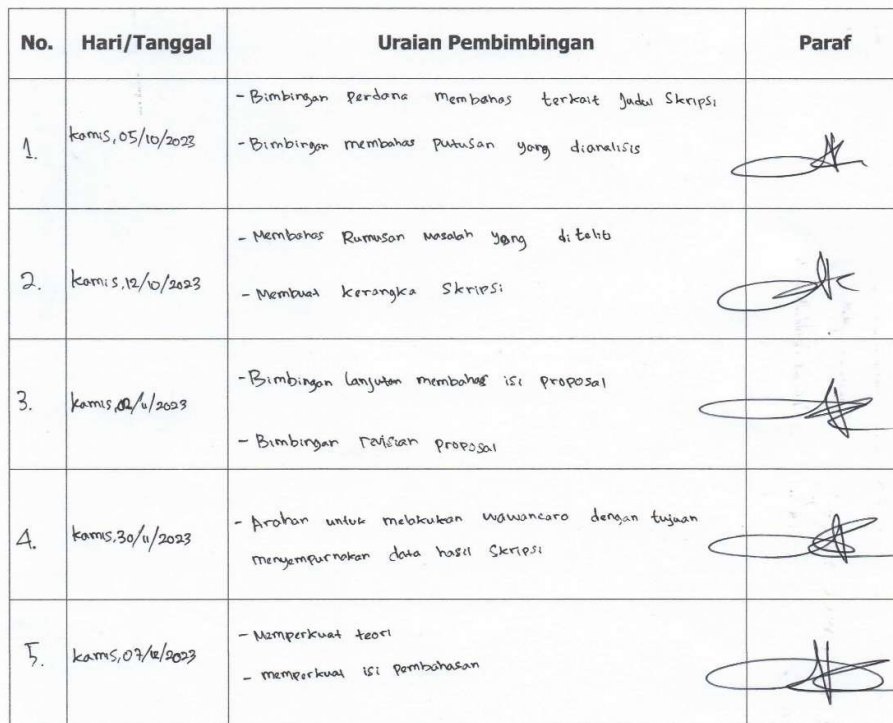 No. Hari/Tanggal Uraian Pembimbingan Paraf
1. kamis, 05/10/2023
- Bimbingan perdana membahas terkait judul Skripsi
- Bimbingan membahas putusan yang dianalisis
2. kamis, 12/10/2023
- Membahas Rumusan Masalah yang diteliti
- Membuat kerangka Skripsi
3. kamis, 02/11/2023
- Bimbingan lanjutan membahas isi proposal
- Bimbingan revisian proposal
4. kamis, 30/11/2023
- Arahan untuk melakukan wawancara dengan tujuan
menyempurnakan data hasil Skripsi
5. kamis, 07/12/2023
- Memperkuat teori
- memperkuat isi pembahasan